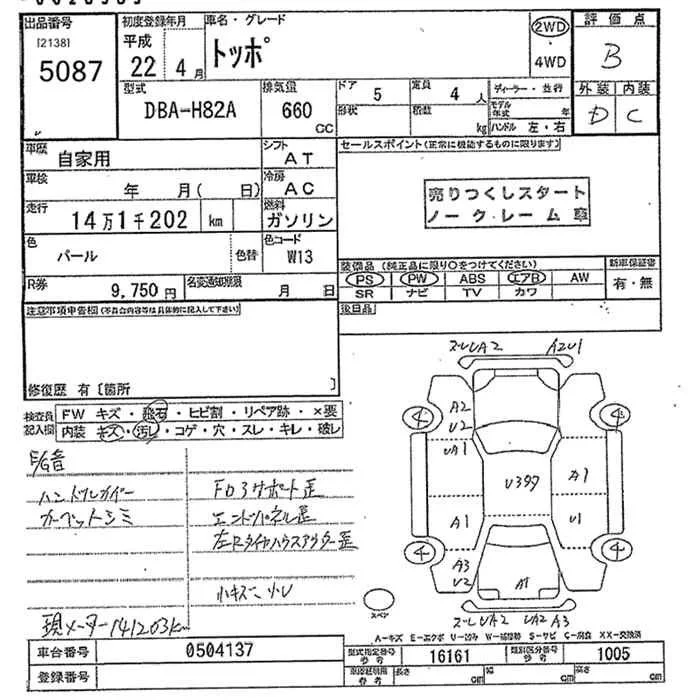 出品番号 初度登録年月 車名・グレード 評価点
[2138] 平成 トッポ 2WD・4WD B
5087 22年 4月
型式 排気量 ドア 5 定員 4人 ディーラー・並行 外装 内装
DBA-H82A 660cc 形状 積数 kg モデル年式 年 D C
ハンドル 左・右
車歴 自家用 シフト AT セールスポイント(正常に機能するものに限ります)
車検 年 月(日) 冷房 AC
走行 14万1千202km 燃料 ガソリン
売りつくしスタート
ノークレーム車
色 パール 色替 色コード W13
装備品(純正品に限り○をつけてください) 新車保証書
PS PW ABS エアB AW 有・無
SR ナビ TV カワ
R券 9,750円 名変通知期限 月 日
後日品
注意事項申告欄(不具合内容等は具体的に記入して下さい)
修復歴 有〔箇所 〕
検査員記入欄
FW キズ・飛石・ヒビ割・リペア跡・×要
内装 キズ・汚レ・コゲ・穴・スレ・キレ・破レ
E/G音
ハンドルカバー
カーペットシミ
FD3サポート歪
エンドパネル歪
左Rタイヤハウスアウター歪
小キズ・小U
現メーター141203km
ズレUA2 A2U1
A2
U2
UA1
A1
A3
U2
U397
A1
U1
A1
4 4
4 4
ズレUA2 UA2 A3
スペア
A-キズ E-エクボ U-凹み W-補修跡 S-サビ C-腐食 XX-交換済
車台番号 0504137 型式指定番号 参考 16161 類別区分番号 参考 1005
登録番号 長さ cm 幅 cm 高さ cm